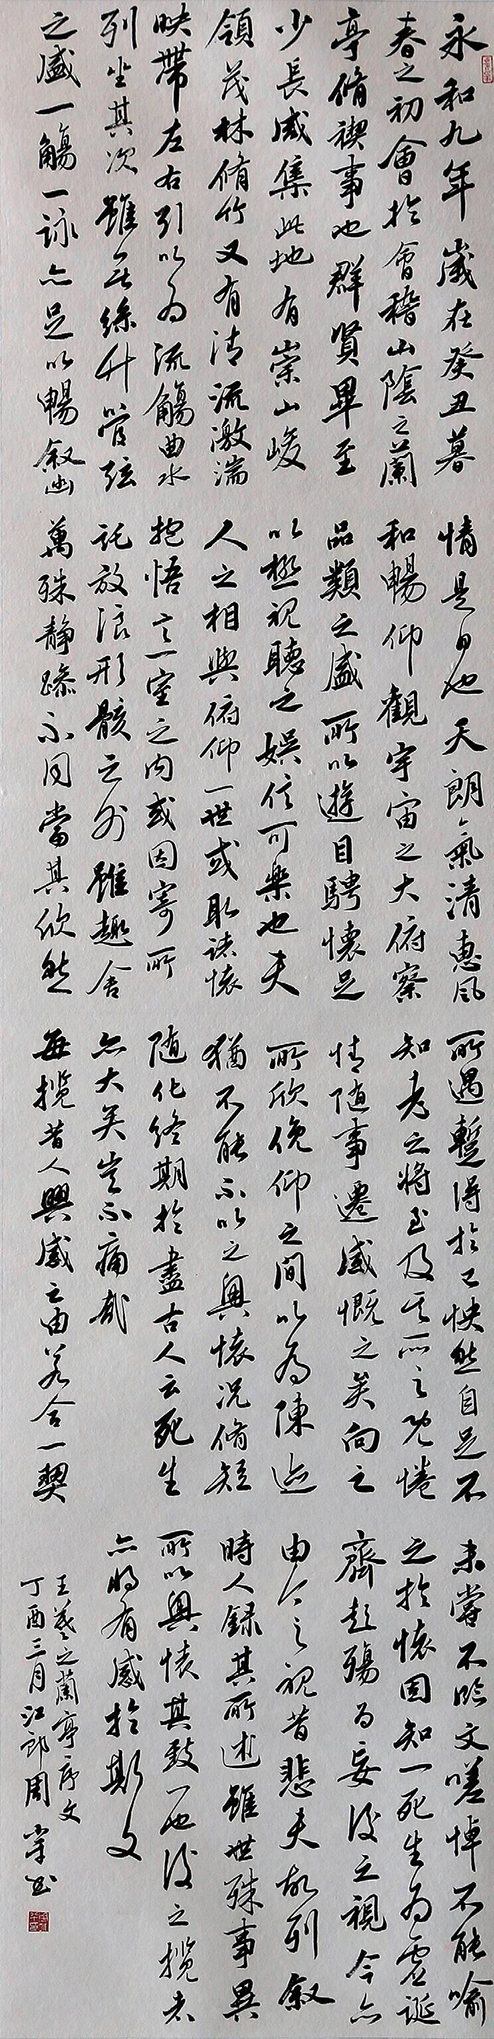 永和九年歲在癸丑暮
春之初會於會稽山陰之蘭
亭脩禊事也群賢畢至
少長咸集此地有崇山峻
領茂林脩竹又有清流激湍
映帶左右引以為流觴曲水
列坐其次雖無絲竹管弦
之盛一觴一詠亦足以暢敘幽
情是日也天朗氣清惠風
和暢仰觀宇宙之大俯察
品類之盛所以遊目騁懷足
以極視聽之娛信可樂也夫
人之相與俯仰一世或取諸懷
抱悟言一室之內或因寄所
託放浪形骸之外雖趣舍
萬殊靜躁不同當其欣然
所遇蹔得於己怏然自足不
知老之將至及其所之既惓
情隨事遷感慨之矣向之
所欣俛仰之間以為陳迹
猶不能不以之興懷況脩短
隨化終期於盡古人云死生
亦大矣豈不痛哉
每攬昔人興感之由若合一契
未嘗不臨文嗟悼不能喻
之於懷固知一死生為虛誕
齊彭殤為妄後之視今亦
由今之視昔悲夫故列敘
時人錄其所述雖世殊事異
所以興懷其致一也後之攬者
亦將有感於斯文
王羲之蘭亭序文
丁酉三月江郎周書